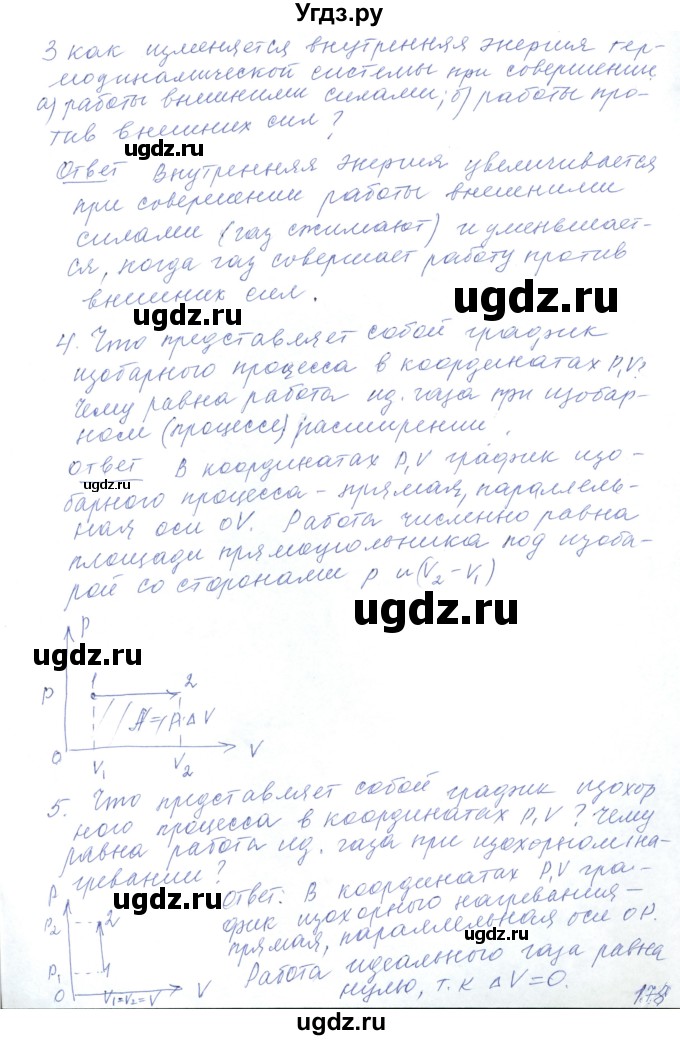 Угдз.ру
3 как изменяется внутренняя энергия тер-
модинамической системы при совершении
а) работы внешними силами; б) работы про-
тив внешних сил?
ugdz.ru
Ответ Внутренняя энергия увеличивается
при совершении работы внешними
силами (газ сжимают) и уменьшает-
ся, когда газ совершает работу против
внешних сил.
ugdz.ru
4. Что представляет собой график
изобарного процесса в координатах P,V?
Чему равна работа ид. газа при изобар-
ном (процессе) расширении.
Ответ В координатах P,V график изо-
ugdz.ru
барного процесса – прямая, параллель-
ная оси OV. Работа численно равна
площади прямоугольника под изоба-
рой со сторонами p и (V₂-V₁)
ugdz.ru
P
ugdz.ru
1 2
P
A=P·ΔV
0 V₁ V₂ V
ugdz.ru
5. Что представляет собой график изохор
ного процесса в координатах P,V? Чему
равна работа ид. газа при изохорном на-
гревании?
ugdz.ru
Ответ: В координатах P,V гра-
фик изохорного нагревания –
прямая, параллельная оси OP.
ugdz.ru
Работа идеального газа равна
нулю, т.к ΔV=0.
P
P₂ 2
P₁ 1
0 V₁=V₂=V V
175
ugdz.ru